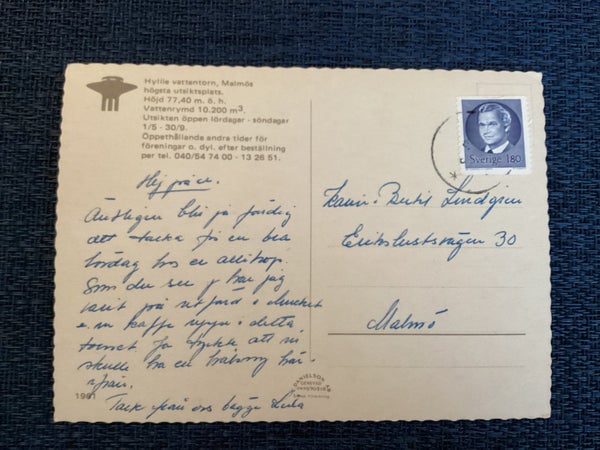 Hyllie vattentorn, Malmös
högsta utsiktsplats.
Höjd 77,40 m. ö. h.
Vattenrymd 10.200 m³.
Utsikten öppen lördagar - söndagar
1/5 - 30/9.
Öppethållande andra tider för
föreningar o. dyl. efter beställning
per tel. 040/54 74 00 - 13 26 51.
Hej på er.
Äntligen blir jag färdig
att tacka för en bra
lördag hos er allihop.
Som du ser har jag
varit på utfärd
kaffe uppe i detta
tornet
skulle ha en hälsning här-
ifrån.
Tack från oss bägge
1981
Sverige 180
Bertil Lindgren
Erikslustsvägen 30
Malmö
DANIELSON